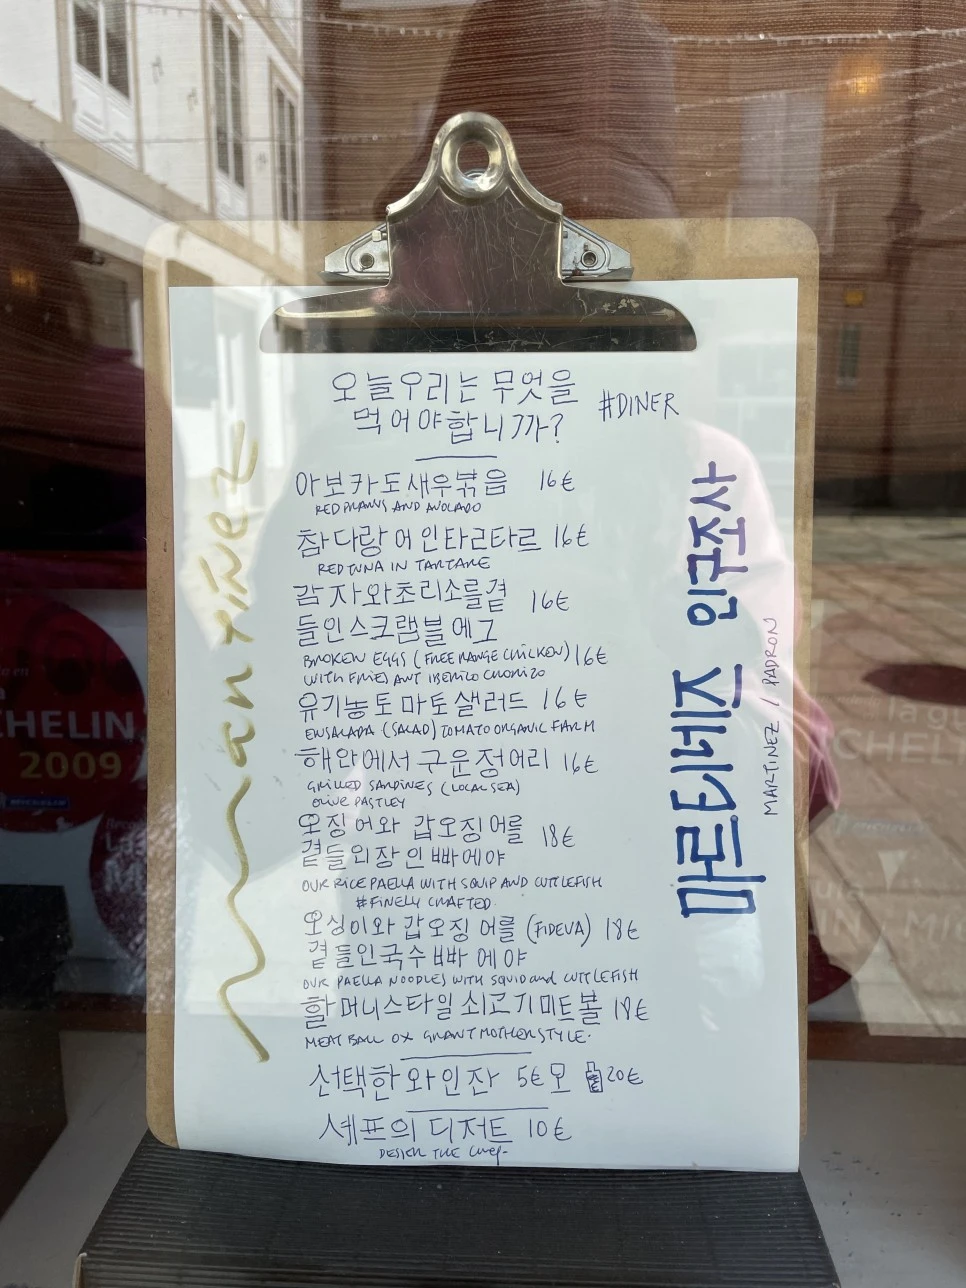 오늘우리는 무엇을
먹어야합니까?
#DINER
아보카도새우볶음 16€
RED PRAWNS AND AVOCADO
참다랑어인타르타르 16€
RED TUNA IN TARTARE
감자와초리소를곁 16€
들인스크램블에그
BROKEN EGGS (FREE RANGE CHICKEN) 16€
WITH FRIES ANT IBERICO CHORIZO
유기농토마토샐러드 16€
ENSALADA (SALAD) TOMATO ORGANIC FARM
해안에서구운정어리 16€
GRILLED SARDINES (LOCAL SEA)
OLIVE PASTLEY
오징어와 갑오징어를 18€
곁들인장인빠에야
OUR RICE PAELLA WITH SQUIP AND CUTTLEFISH
#FINELY CRAFTED
오싱이와 갑오징어를 (FIDEVA) 18€
곁들인국수빠에야
OUR PAELLA NOODLES WITH SQUID and CUTTLEFISH
할머니스타일쇠고기미트볼 18€
MEAT BALL OX GRANT MOTHER STYLE.
선택한와인잔 5€ 모 20€
셰프의디저트 10€
DESIGN THE CHEF
martinez
마르티네즈 입구조사
MARTINEZ / PADRON
CHELIN
2009
MICHELIN